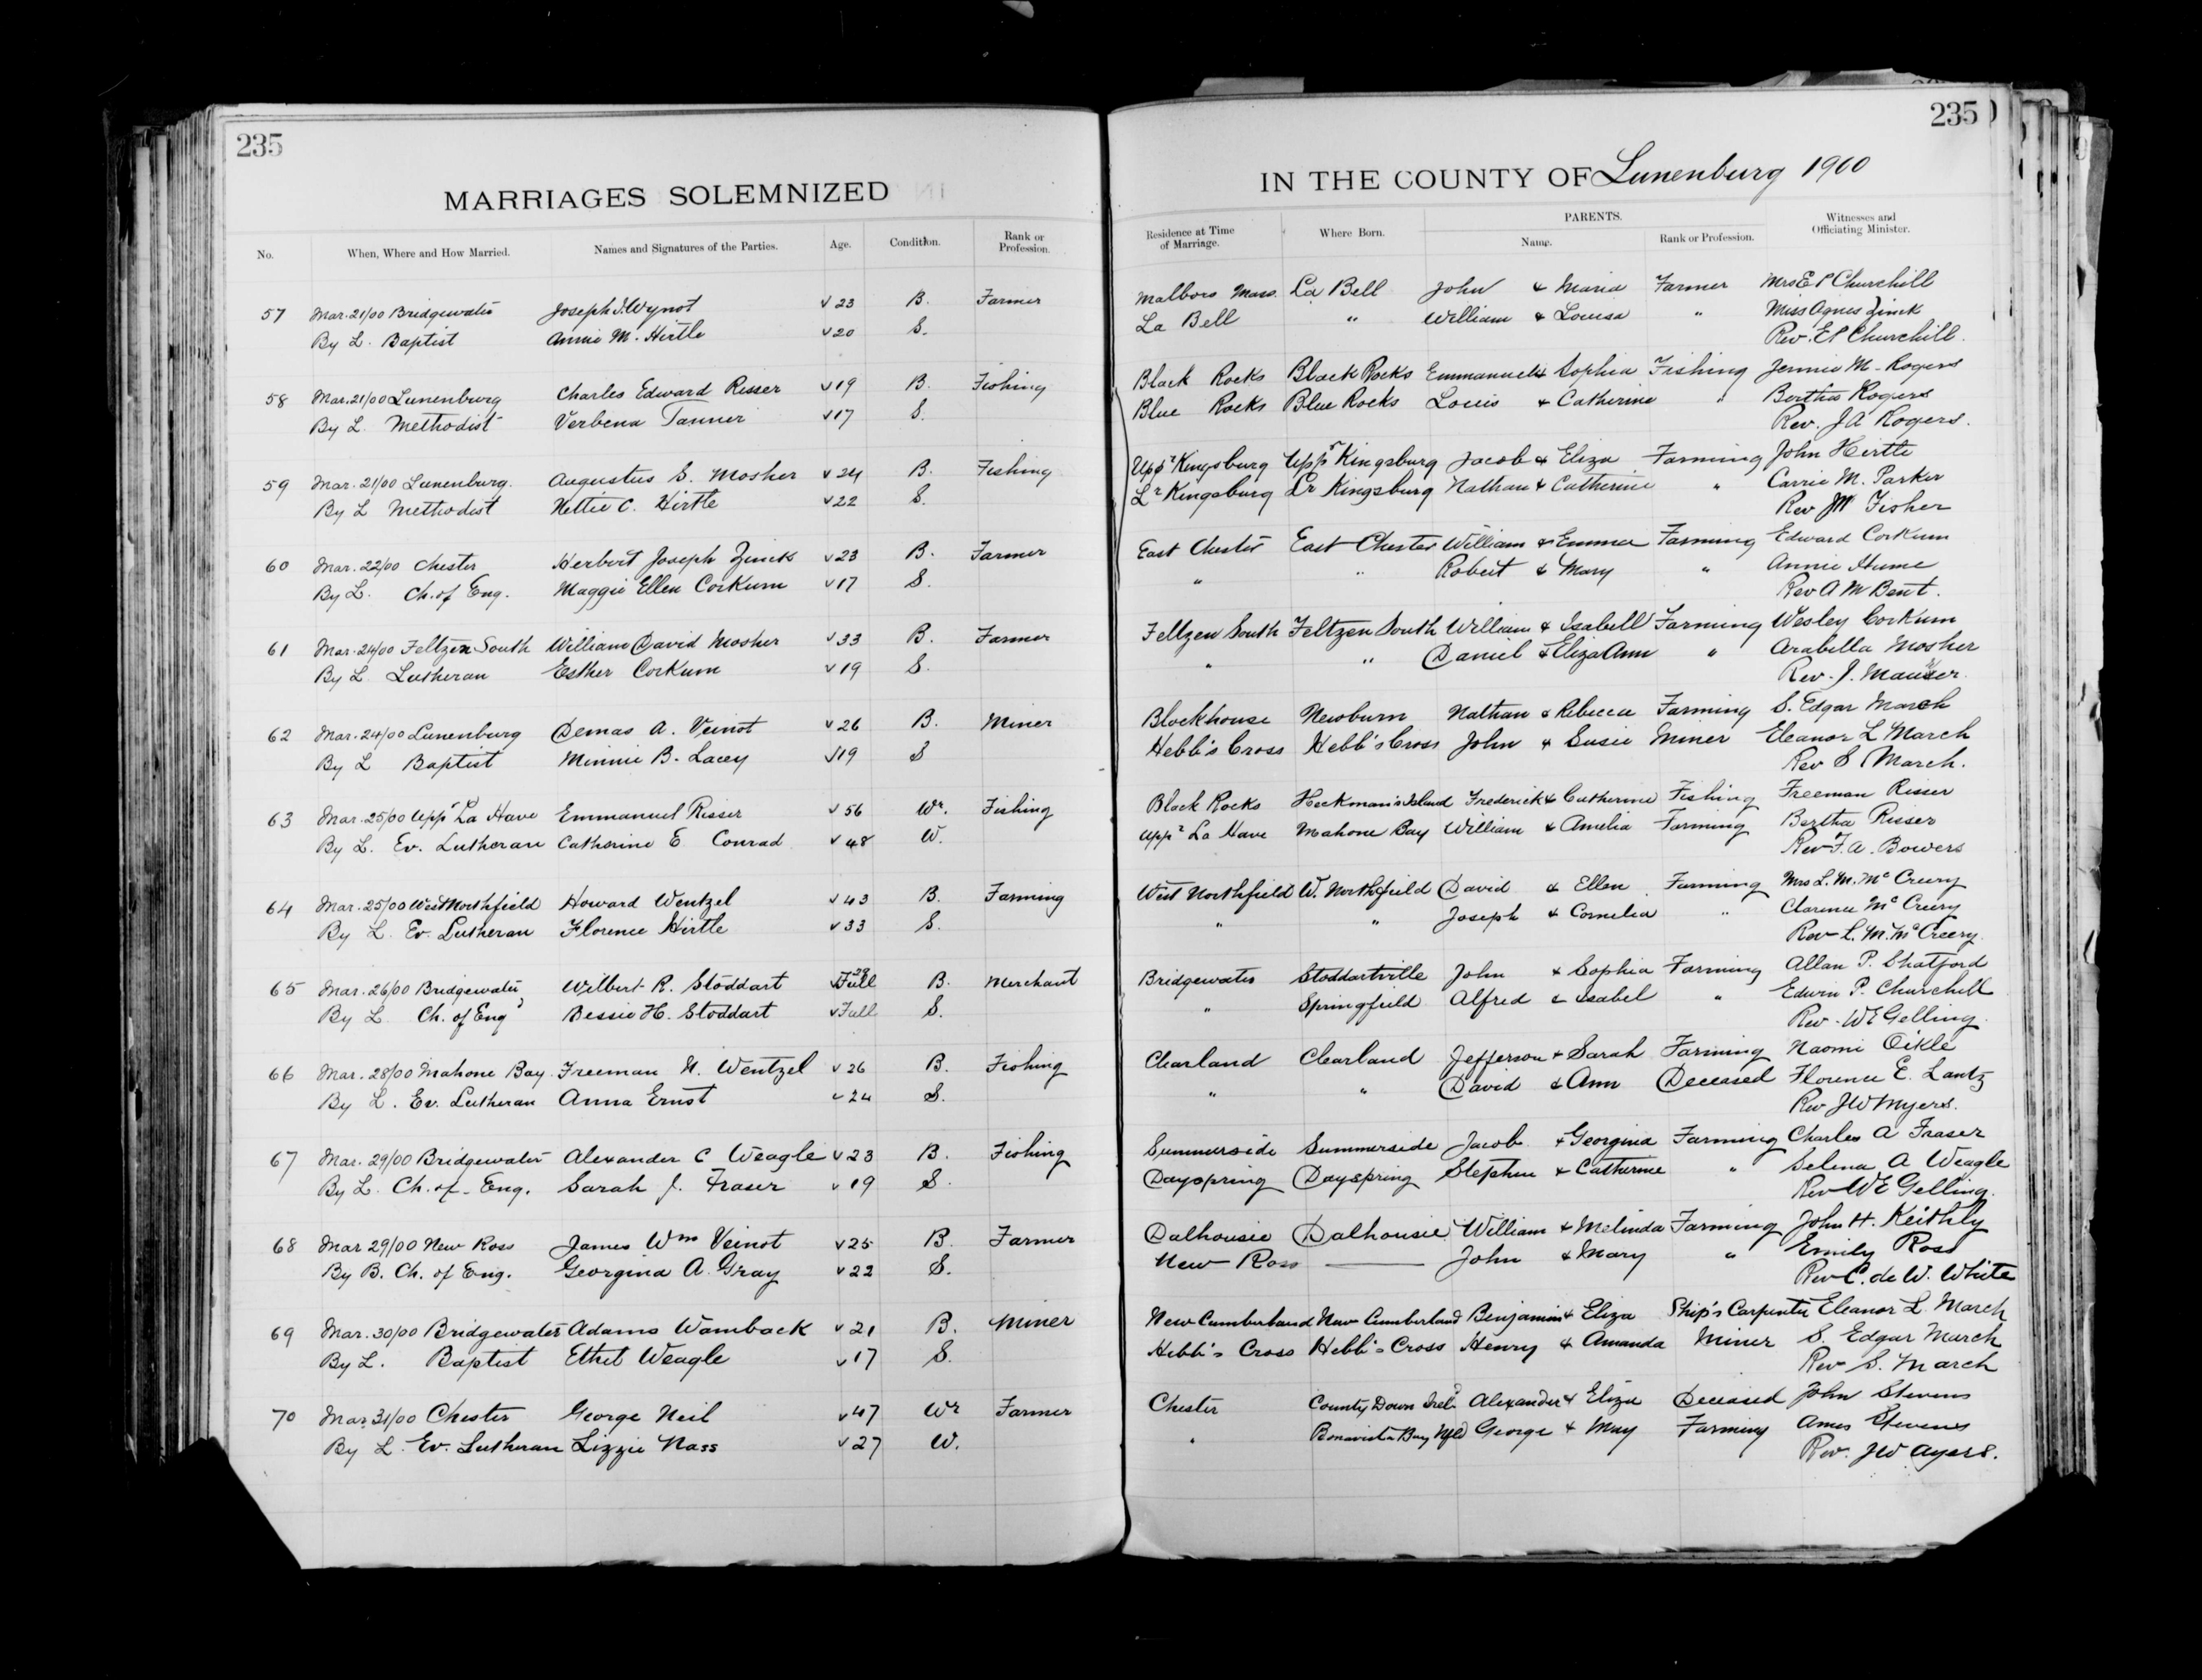 235
MARRIAGES SOLEMNIZED
No. When, Where and How Married. Names and Signatures of the Parties. Age. Condition. Rank or Profession.
57 Mar. 21/00 Bridgewater Joseph I. Wynot √ 23 B. Farmer
By L. Baptist Annie M. Hirtle √ 20 S.
58 Mar. 21/00 Lunenburg Charles Edward Risser √ 19 B. Fishing
By L. Methodist Verbena Tanner √ 17 S.
59 Mar. 21/00 Lunenburg. Augustus S. Mosher √ 24 B. Fishing
By L Methodist Nettie C. Hirtle √ 22 S.
60 Mar. 22/00 Chester Herbert Joseph Zinck √ 23 B. Farmer
By L. Ch. of Eng. Maggie Ellen Corkum √ 17 S.
61 Mar. 24/00 Feltzen South William David Mosher √ 33 B. Farmer
By L Lutheran Esther Corkum √ 19 S.
62 Mar. 24/00 Lunenburg Demas A. Veinot √ 26 B. Miner
By L Baptist Minnie B. Lacey √ 19 S
63 Mar. 25/00 Uppr La Have Emmanuel Risser √ 56 Wr. Fishing
By L. Ev. Lutheran Catherine E Conrad √ 48 W.
64 Mar. 25/00 West Northfield Howard Wentzel √ 43 B. Farming
By L. Ev. Lutheran Florence Hirtle √ 33 S.
65 Mar. 26/00 Bridgewater Wilbert R. Stoddart Full 28 B. Merchant
By L Ch. of Eng Bessie H. Stoddart √ Full S.
66 Mar. 28/00 Mahone Bay Freeman N. Wentzel √ 26 B. Fishing
By L. Ev. Lutheran Anna Ernst √ 24 S.
67 Mar. 29/00 Bridgewater Alexander C Weagle √ 23 B. Fishing
By L. Ch. of Eng. Sarah J. Fraser √ 19 S.
68 Mar 29/00 New Ross James Wm Veinot √ 25 B. Farmer
By B. Ch. of Eng. Georgina A. Gray √ 22 S.
69 Mar. 30/00 Bridgewater Adams Wamback √ 21 B. Miner
By L. Baptist Ethel Weagle √ 17 S.
70 Mar. 31/00 Chester George Neil √ 47 Wr Farmer
By L. Ev. Lutheran Lizzie Nass √ 27 W.
235
IN THE COUNTY OF Lunenburg 1900
Residence at Time of Marriage. Where Born. PARENTS. Name. Rank or Profession. Witnesses and Officiating Minister.
Malboro Mass. La Bell John & Maria Farmer Mrs E P Churchill
La Bell " William & Louisa " Miss Agnes Zinck
Rev. E P Churchill.
Black Rocks Black Rocks Emmanuel & Sophia Fishing Jennie M. Rogers
Blue Rocks Blue Rocks Louis & Catherine " Bertha Rogers
Rev. J A Rogers.
Uppr Kingsburg Uppr Kingsburg Jacob & Eliza Farming John Hirtle
Lr Kingsburg Lr Kingsburg Nathan & Catherine " Carrie M. Parker
Rev JM Fisher
East Chester East Chester William & Emma Farming Edward Corkum
" " Robert & Mary " Annie Hume
Rev A M Bent.
Feltzen South Feltzen South William & Isabell Farming Wesley Corkum
" " Daniel & Eliza Ann " Arabella Mosher
Rev. J. Mauser.
Blockhouse Newburn Nathan & Rebecca Farming S. Edgar March
Hebb's Cross Hebb's Cross John & Susie Miner Eleanor L March
Rev S March.
Black Rocks Heckman's Island Frederick & Catherine Fishing Freeman Risser
Uppr La Have Mahone Bay William & Amelia Farming Bertha Risser
Rev F. A. Bowers
West Northfield W. Northfield David & Ellen Farming Mrs L. M. McCreery
" " Joseph & Cornelia " Clarence McCreery
Rev L. M. McCreery.
Bridgewater Stoddartville John & Sophia Farming Allan P. Shatford
" Springfield Alfred & Isabel " Edwin P. Churchill
Rev. W E Gelling.
Clearland Clearland Jefferson & Sarah Farming Naomi Oikle
" " David & Ann Deceased Florence E. Lantz
Rev J W Myers.
Summerside Summerside Jacob & Georgina Farming Charles A Fraser
Dayspring Dayspring Stephen & Catherine " Selena A Weagle
Rev W E Gelling.
Dalhousie Dalhousie William & Melinda Farming John H. Keithly
New Ross — John & Mary " Emily Ross
Rev C. de W. White
New Cumberland New Cumberland Benjamin & Eliza Ship's Carpenter Eleanor L. March
Hebb's Cross Hebb's Cross Henry & Amanda Miner S. Edgar March
Rev S. March
Chester County Down Ireld Alexander & Eliza Deceased John Stevens
" Bonavista Bay Nfld George & May Farming Amos Stevens
Rev. J W Ayers.